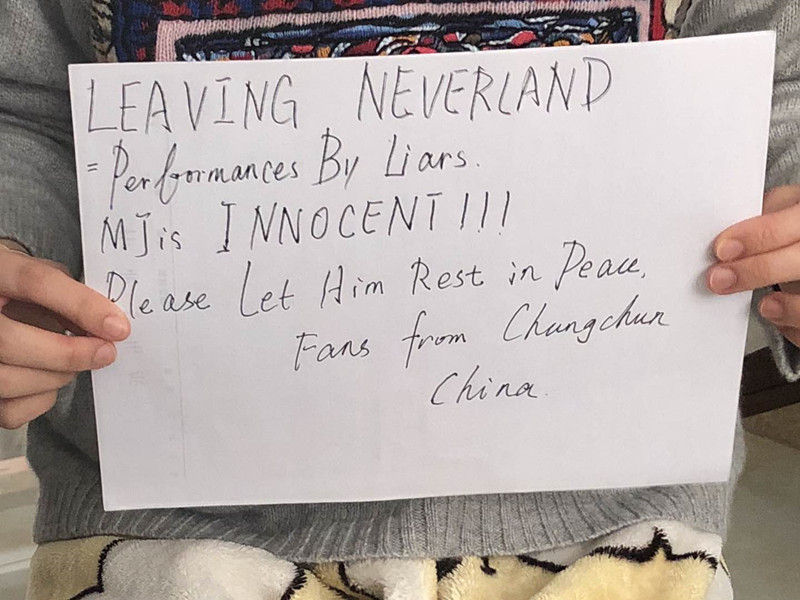 LEAVING NEVERLAND
= Performances By Liars.
MJ is INNOCENT!!!
Please Let Him Rest in Peace.
Fans from Chungchun
China.